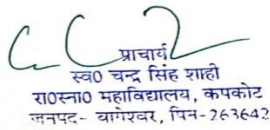 प्राचार्य
स्व0 चन्द्र सिंह शाही
रा0स्ना0 महाविद्यालय, कपकोट
जनपद- बागेश्वर, पिन-263642